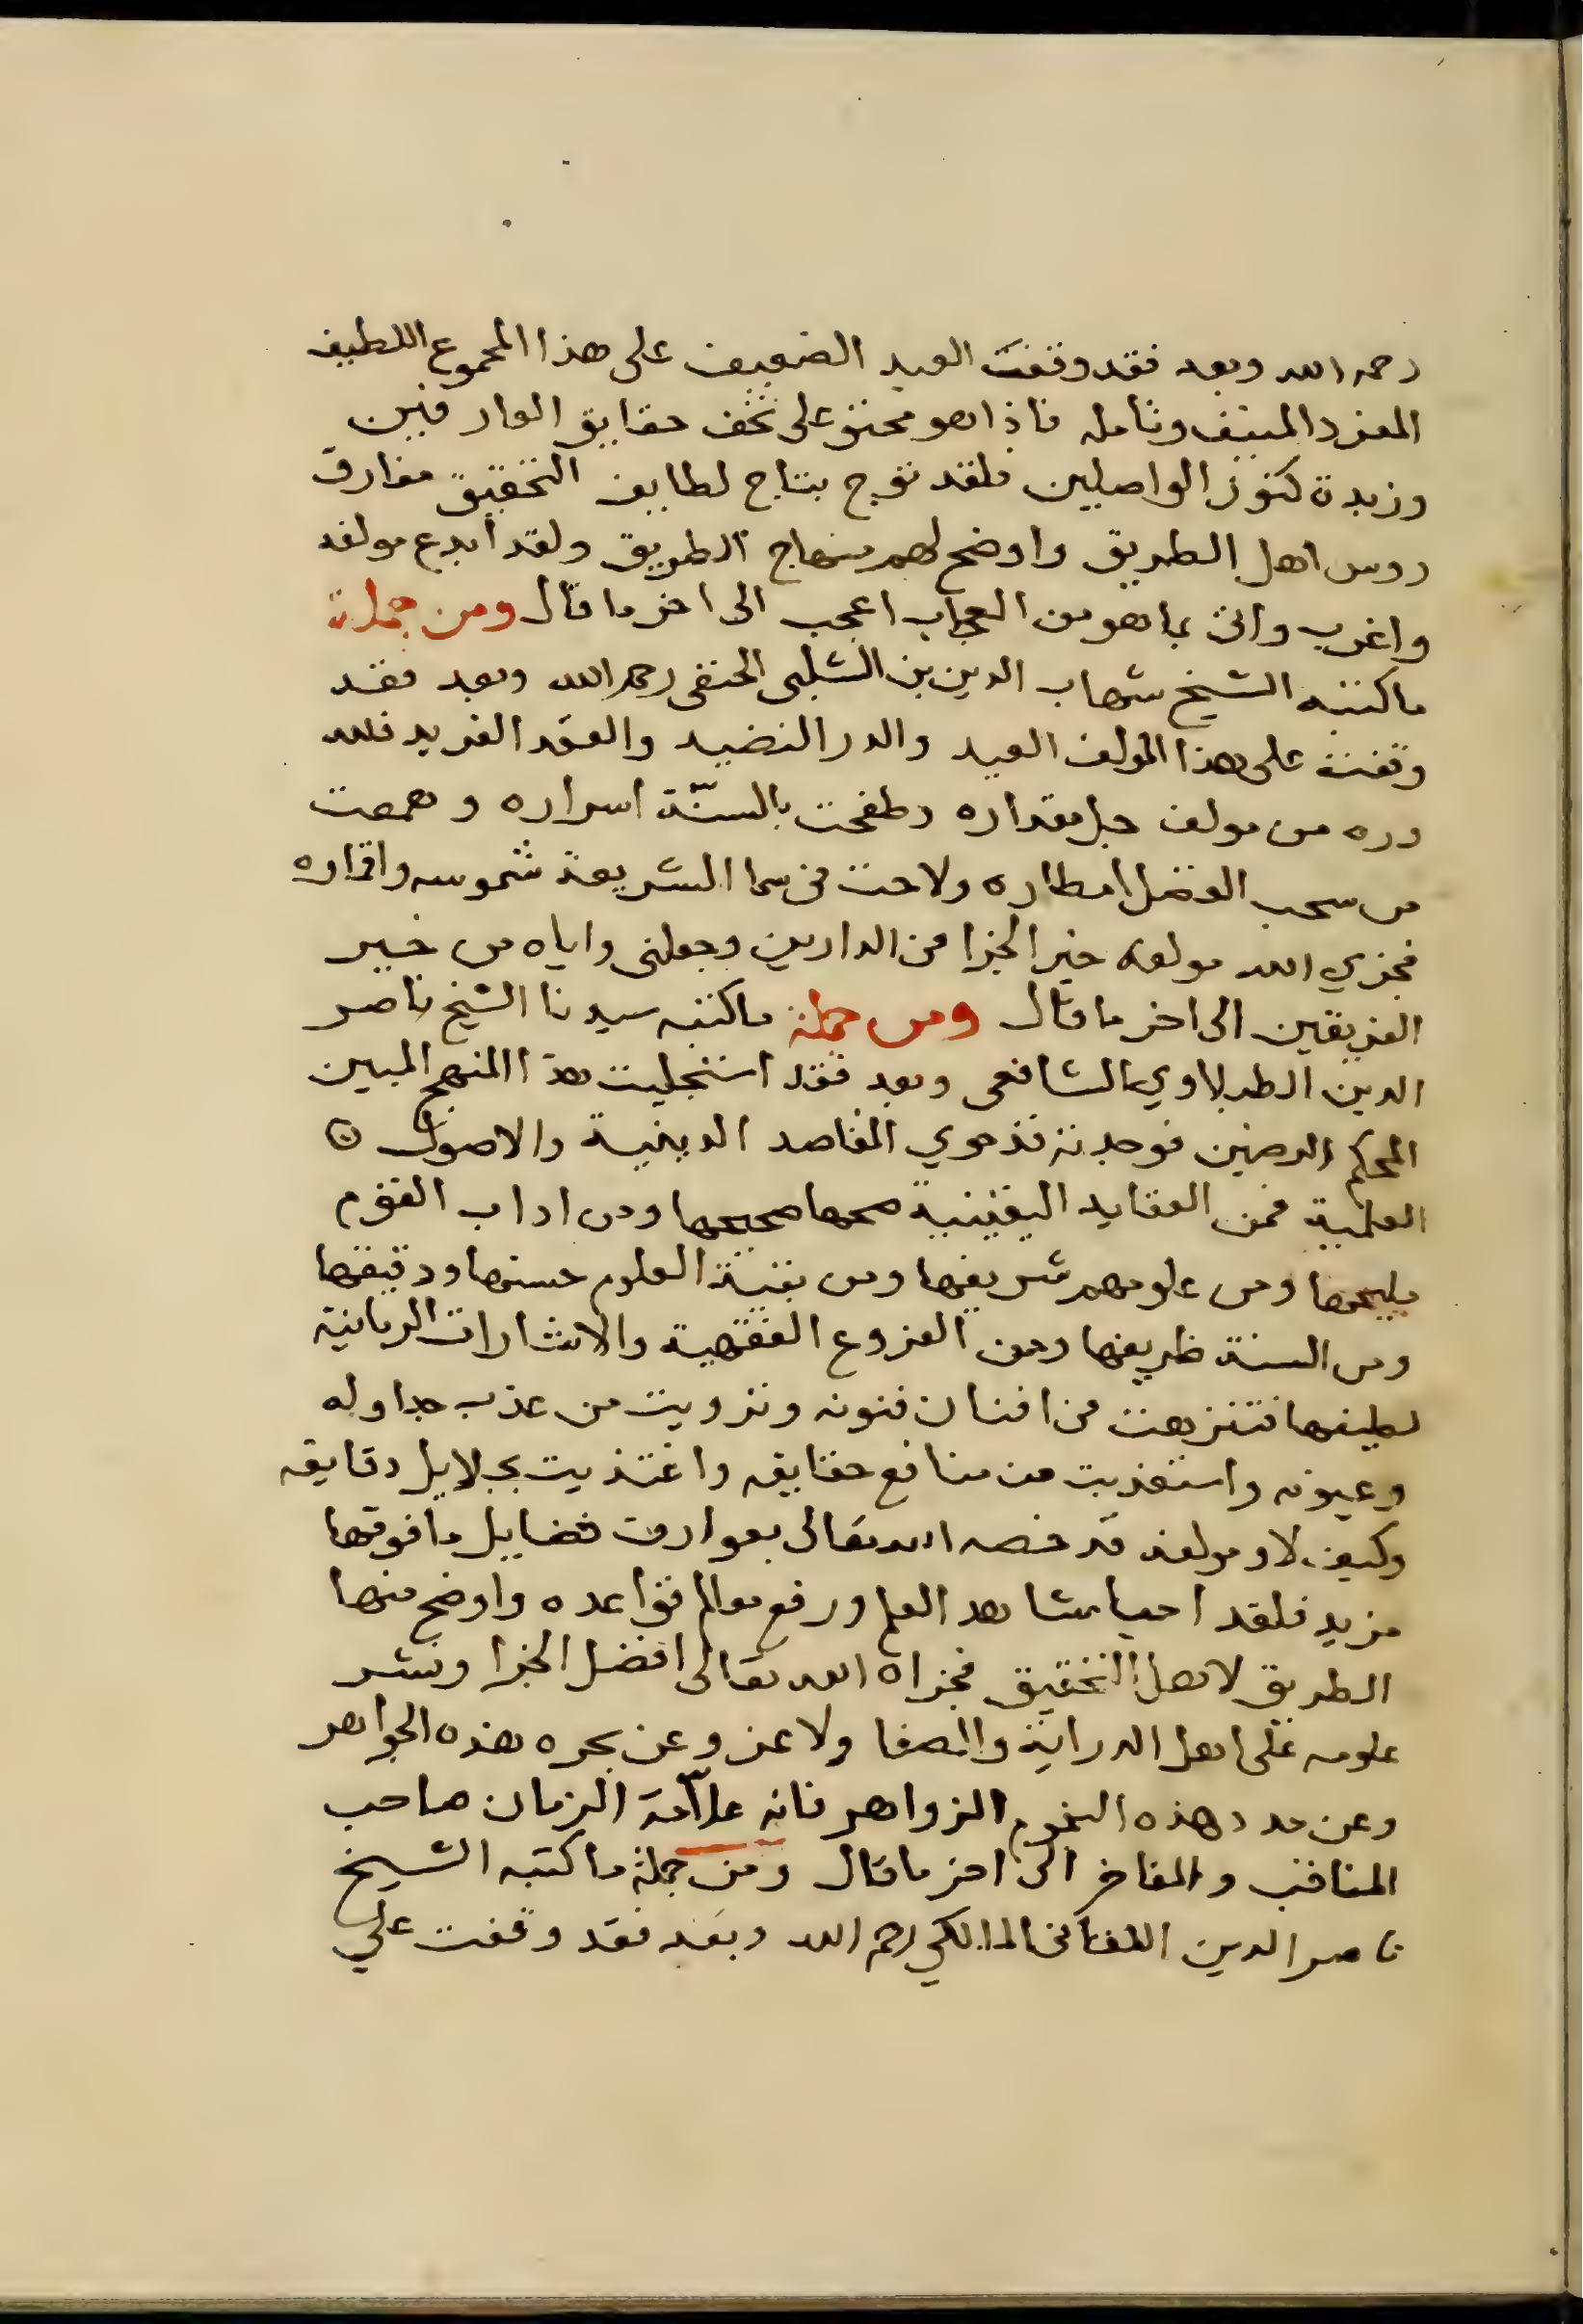 رحمه الله وبعد فقد وقفت العبد الضعيف على هذا المجموع اللطيف
المفرد المنيف وتامله فاذا هو محتو على تحف حقايق العارفين
وزبدة كنوز الواصلين فلقد توج بتاج لطايف التحقيق مفارق
روس اهل الطريق واوضح لهم منهاج الطريق ولقد ابدع مولفه
واغرب واتى بما هو من العجاب اعجب الى اخر ما قال ومن جملة
ما كتبه الشيخ شهاب الدين بن الشلبى الحنفى رحمه الله وبعد فقد
وقفت على هذا المولف العبد والدر النضيد والعقد الفريد فلله
دره من مولف جل مقداره وطفحت بالسنّة اسراره وهمعت
من سحب الفضل امطاره ولاحت فى سما الشريعة شموسه واقماره
فجزي الله مولفه خير الجزا فى الدارين وجعلنى واياه من خير
الفريقين الى اخر ما قال ومن جملة ما كتبه سيدنا الشيخ ناصر
الدين الطبلاوي الشافعى وبعد فقد استجليت هذا المنهج المبين
المحكم الرصين فوجدته قد حوي المقاصد الدينية والاصول
العلمية فمن العقايد اليقينية صحها صحيحها ومن اداب القوم
مليحها ومن علومهم شريفها ومن بقية العلوم حسنها ودقيقها
ومن السنة ظريفها ومن الفروع الفقهية والاشارات الربانية
لطيفها فتنزهت فى افنان فنونه وترويت من عذب جداوله
وعيونه واستفدت من منافع حقايقه واغتذيت بجلايل دقايقه
وكيف لا ومولفه قد خصه الله تعالى بعوارف فضايل ما فوقها
مزيد فلقد احيا مشاهد العلم ورفع معالم قواعده واوضح منها
الطريق لاهل التحقيق فجزاه الله تعالى افضل الجزا ونشر
علومه على اهل الدراية والصفا ولا غرو عن بحره هذه الجواهر
وعن مدد هذه النجوم الزواهر فانه علاّمة الزمان صاحب
المناقب والمفاخر الى اخر ما قال ومن جملة ما كتبه الشيخ
ناصر الدين اللقانى المالكي رحمه الله وبعد فقد وقفت علي